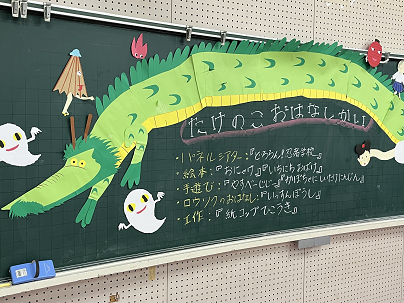 たけのこ おはなしかい
・パネルシアター:『どろろん!忍者学校』
・絵本:『おにのサ』『いちにちおばけ』
・手遊び:『くるべーじじー』『かぼちゃにいちりんじん』
・ロウソクのおはなし:『いっすんぼうし』
・工作:『紙コップひこうき』